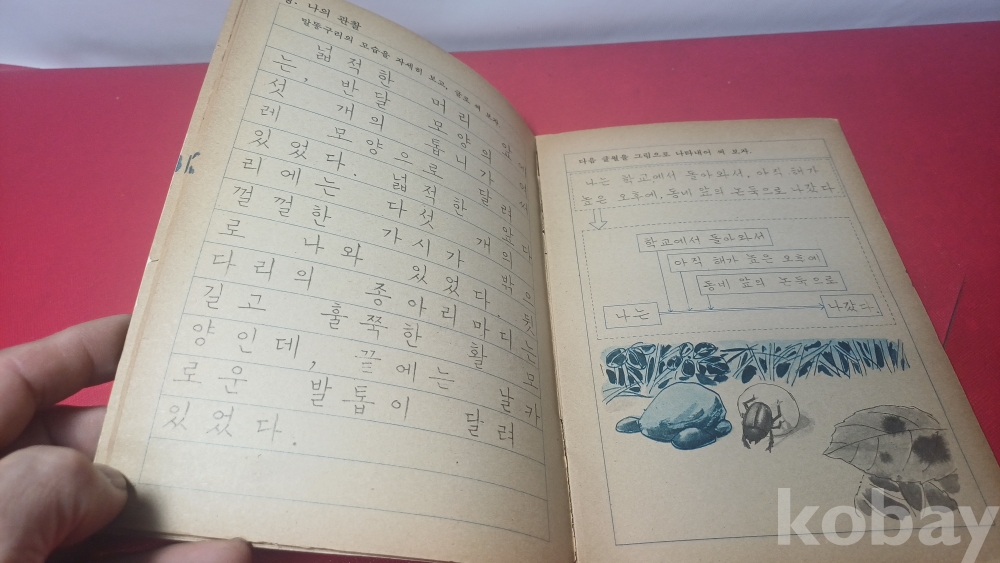 나의 관찰
말똥구리의 모습을 자세히 보고, 글로 써 보자.
넓적한 머리 앞에
는, 반달 모양의 여
섯 개의 톱니가 써
레 모양으로 달려
있었다. 넓적한 앞다
리에는 다섯 개의
껄껄한 가시가 밖으
로 나와 있었다. 뒷
다리의 종아리마디는
길고 훌쭉한 활 모
양인데, 끝에는 날카
로운 발톱이 달려
있었다.
다음 글월을 그림으로 나타내어 써 보자.
나는 학교에서 돌아와서, 아직 해가
높은 오후에, 동네 앞의 논둑으로 나갔다.
학교에서 돌아와서
아직 해가 높은 오후에
동네 앞의 논둑으로
나는 나갔다.
kobay